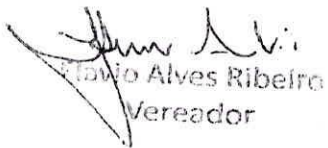 Flavio Alves Ribeiro
Vereador